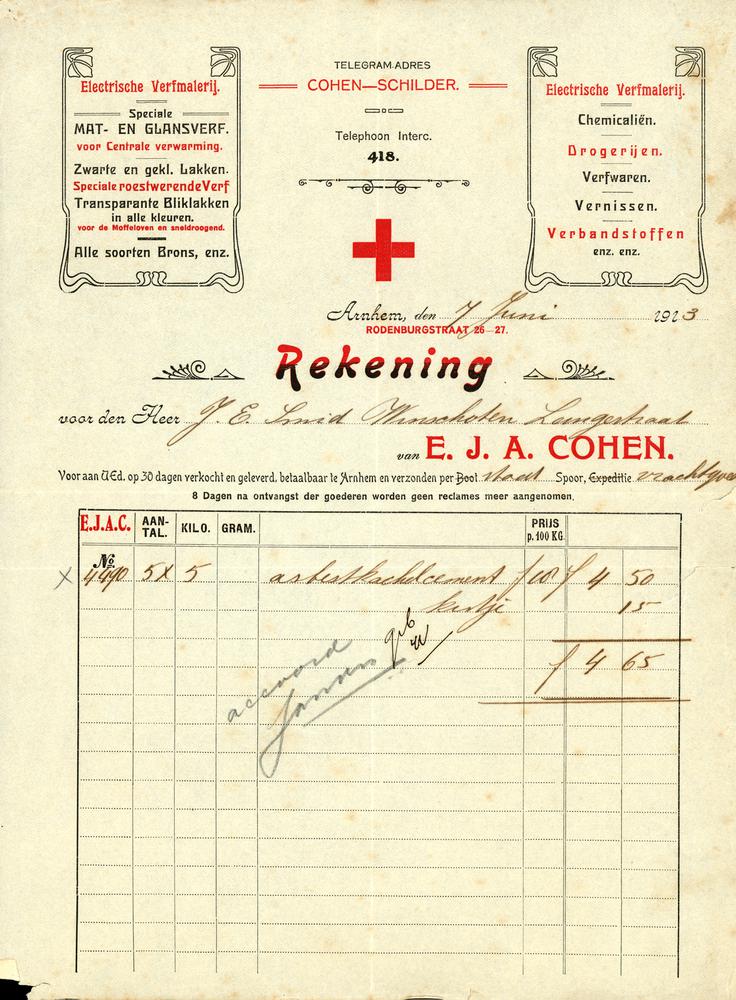 Electrische Verfmalerij.
Speciale
MAT- EN GLANSVERF.
voor Centrale verwarming.
Zwarte en gekl. Lakken.
Speciale roestwerendeVerf
Transparante Bliklakken
in alle kleuren.
voor de Moffeloven en sneldroogend.
Alle soorten Brons, enz.
TELEGRAM-ADRES
COHEN—SCHILDER.
Telephoon Interc.
418.
Electrische Verfmalerij.
Chemicaliën.
Drogerijen.
Verfwaren.
Vernissen.
Verbandstoffen
enz. enz.
Arnhem, den 7 Juni 1913
RODENBURGSTRAAT 26-27.
Rekening
voor den Heer J. E. Smid Winschoten Langestraat
van E. J. A. COHEN.
Voor aan UEd. op 30 dagen verkocht en geleverd, betaalbaar te Arnhem en verzonden per Boot Spoor, Expeditie
8 Dagen na ontvangst der goederen worden geen reclames meer aangenomen.
E.J.A.C. AAN-TAL. KILO. GRAM. PRIJS p. 100 KG.
No
X 4490 5X 5 f 4 50
kistje 15
f 4 65
accoord